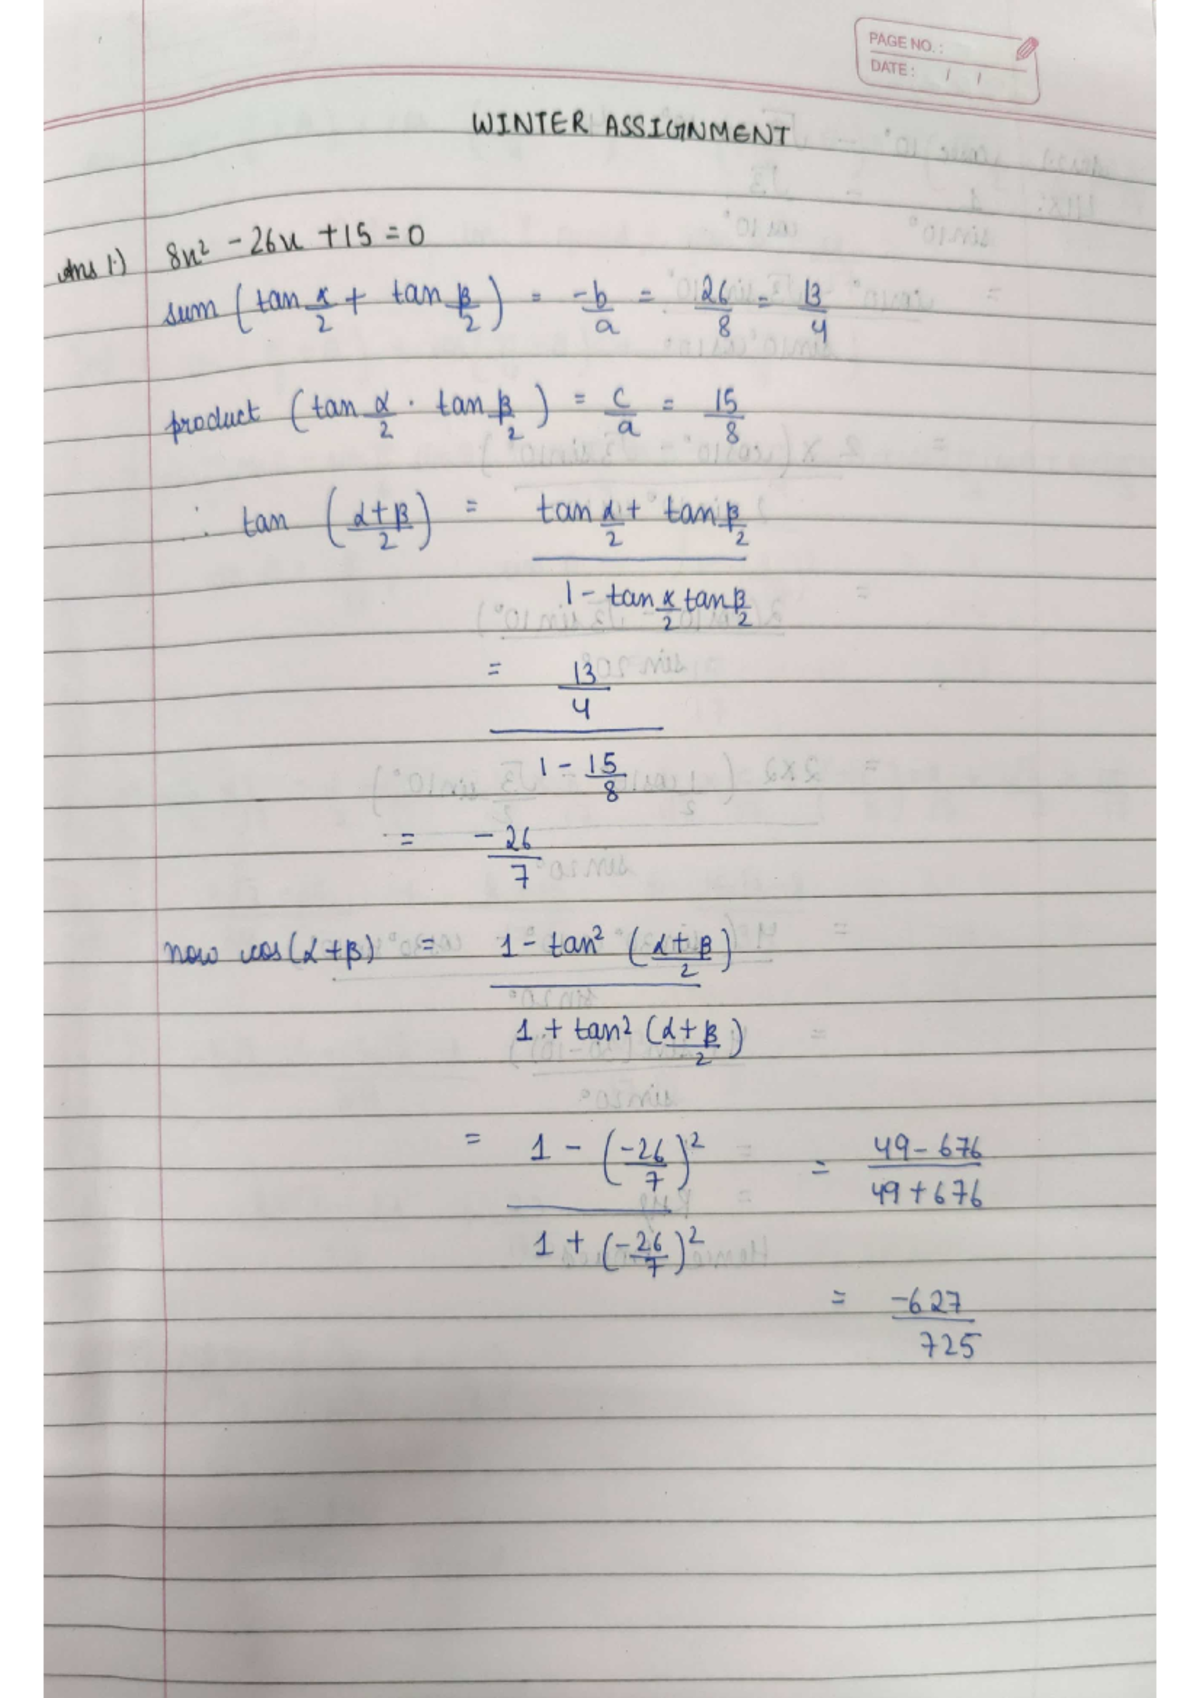 PAGE NO.:
DATE: / /
WINTER ASSIGNMENT
Ans 1.) 8x² - 26x + 15 = 0
sum (tan α/2 + tan β/2) = -b/a = 26/8 = 13/4
product (tan α/2 · tan β/2) = c/a = 15/8
∴ tan (α+β/2) = tan α/2 + tan β/2
1 - tan α/2 tan β/2
= 13/4
1 - 15/8
= -26/7
now cos(α+β) = 1 - tan² (α+β/2)
1 + tan² (α+β/2)
= 1 - (-26/7)² = 49 - 676
1 + (-26/7)² 49 + 676
= -627/725